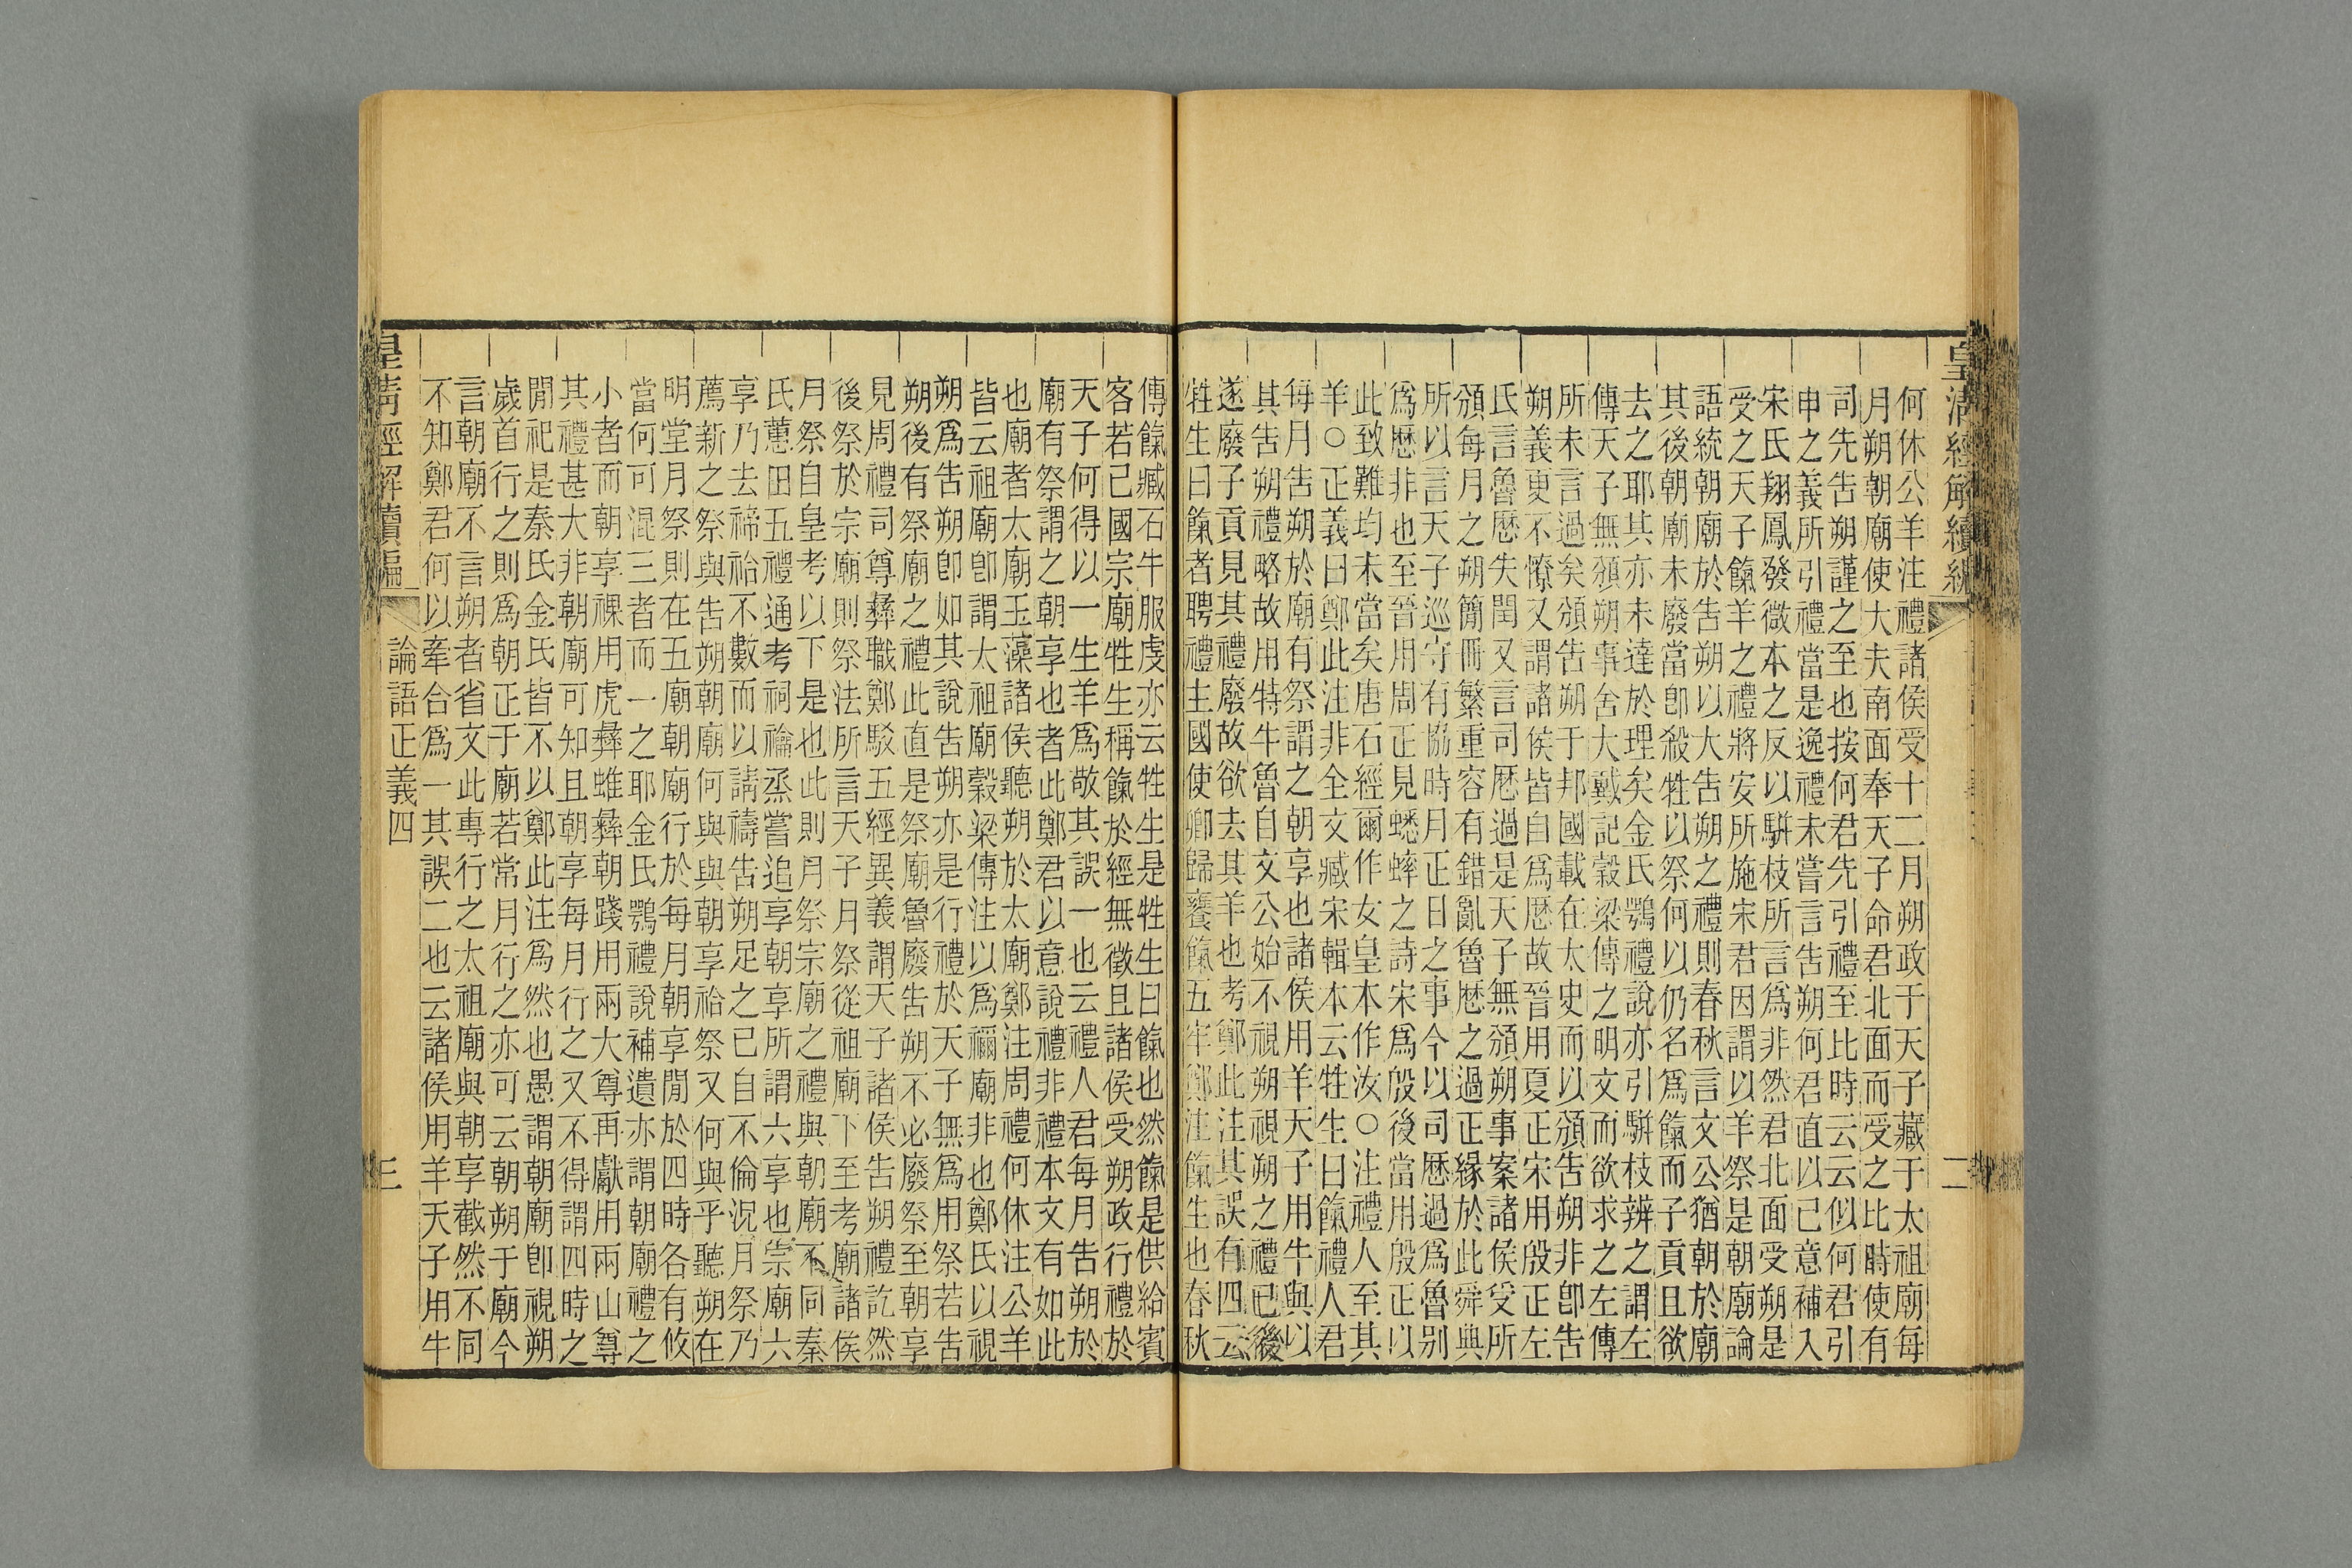 皇清經解續編
二
何休公羊注禮諸侯受十二月朔政于天子藏于太祖廟每
月朔朝廟使大夫南面奉天子命君北面而受之比時使有
司先告朔謹之至也按何君先引禮至比時云云似何君引
申之義所引禮當是逸禮未嘗言告朔何君直以己意補入
宋氏翔鳳發微本之反以駢枝所言爲非然君北面受朔是
受之天子餼羊之禮將安所施宋君因謂以羊祭是朝廟論
語統朝廟於告朔以大告朔之禮則春秋言文公猶朝於廟
其後朝廟未廢當卽殺牲以祭何以仍名爲餼而子貢且欲
去之耶其亦未達於理矣金氏鶚禮說亦引駢枝辨之謂左
傳天子無頒朔事舍大戴記穀梁傳之明文而欲求之左傳
所未言過矣頒告朔于邦國載在太史而以頒告朔非卽告
朔義更不憭又謂諸侯皆自爲厯故晉用夏正宋用殷正左
氏言魯厯失閏又言司厯過是天子無頒朔事案諸侯受所
頒每月之朔簡冊繁重容有錯亂魯厯之過正緣於此舜典
所以言天子巡守有協時月正日之事今以司厯過爲魯别
爲厯非也至晉用周正見蟋蟀之詩宋爲殷後當用殷正以
此致難均未當矣唐石經爾作女皇本作汝○注禮人至其
羊○正義曰鄭此注非全文臧宋輯本云牲生曰餼禮人君
每月告朔於廟有祭謂之朝享也諸侯用羊天子用牛與以
其告朔禮略故用特牛魯自文公始不視朔視朔之禮已後
遂廢子貢見其禮廢故欲去其羊也考鄭此注其誤有四云
牲生曰餼者聘禮主國使卿歸饔餼五牢鄭注餼生也春秋
傳餼臧石牛服虔亦云牲生是牲生曰餼也然餼是供給賓
客若己國宗廟牲生稱餼於經無徵且諸侯受朔政行禮於
天子何得以一生羊爲敬其誤一也云禮人君每月告朔於
廟有祭謂之朝享也者此鄭君以意說禮非禮本文有如此
也廟者太廟玉藻諸侯聽朔於太廟鄭注周禮何休注公羊
皆云祖廟卽謂太祖廟穀梁傳注以爲禰廟非也鄭氏以視
朔爲告朔卽如其說告朔亦是行禮於天子無爲用祭若告
朔後有祭廟之禮此直是祭廟魯廢告朔不必廢祭至朝享
見周禮司尊彝職鄭駁五經異義謂天子諸侯告朔禮訖然
後祭於宗廟則祭法所言天子月祭從祖廟下至考廟諸侯
月祭自皇考以下是也此則月祭宗廟之禮與朝廟不同秦
氏蕙田五禮通考祠禴烝嘗追享朝享所謂六享也崇廟六
享乃去禘祫不數而以請禱告朔足之已自不倫況月祭乃
薦新之祭與告朔朝廟何與與朝享祫祭又何與乎聽朔在
明堂月祭則在五廟朝廟行於每月朝享閒於四時各有攸
當何可混三者而一之耶金氏鶚禮說補遺亦謂朝廟禮之
小者而朝享祼用虎彝蜼彝朝踐用兩大尊再獻用兩山尊
其禮甚大非朝廟可知且朝享每月行之又不得謂四時之
閒祀是秦氏金氏皆不以鄭此注爲然也愚謂朝廟卽視朔
歲首行之則爲朝正于廟若常月行之亦可云朝朔于廟今
言朝廟不言朔者省文此專行之太祖廟與朝享截然不同
不知鄭君何以牽合爲一其誤二也云諸侯用羊天子用牛
皇清經解續編
論語正義四
三